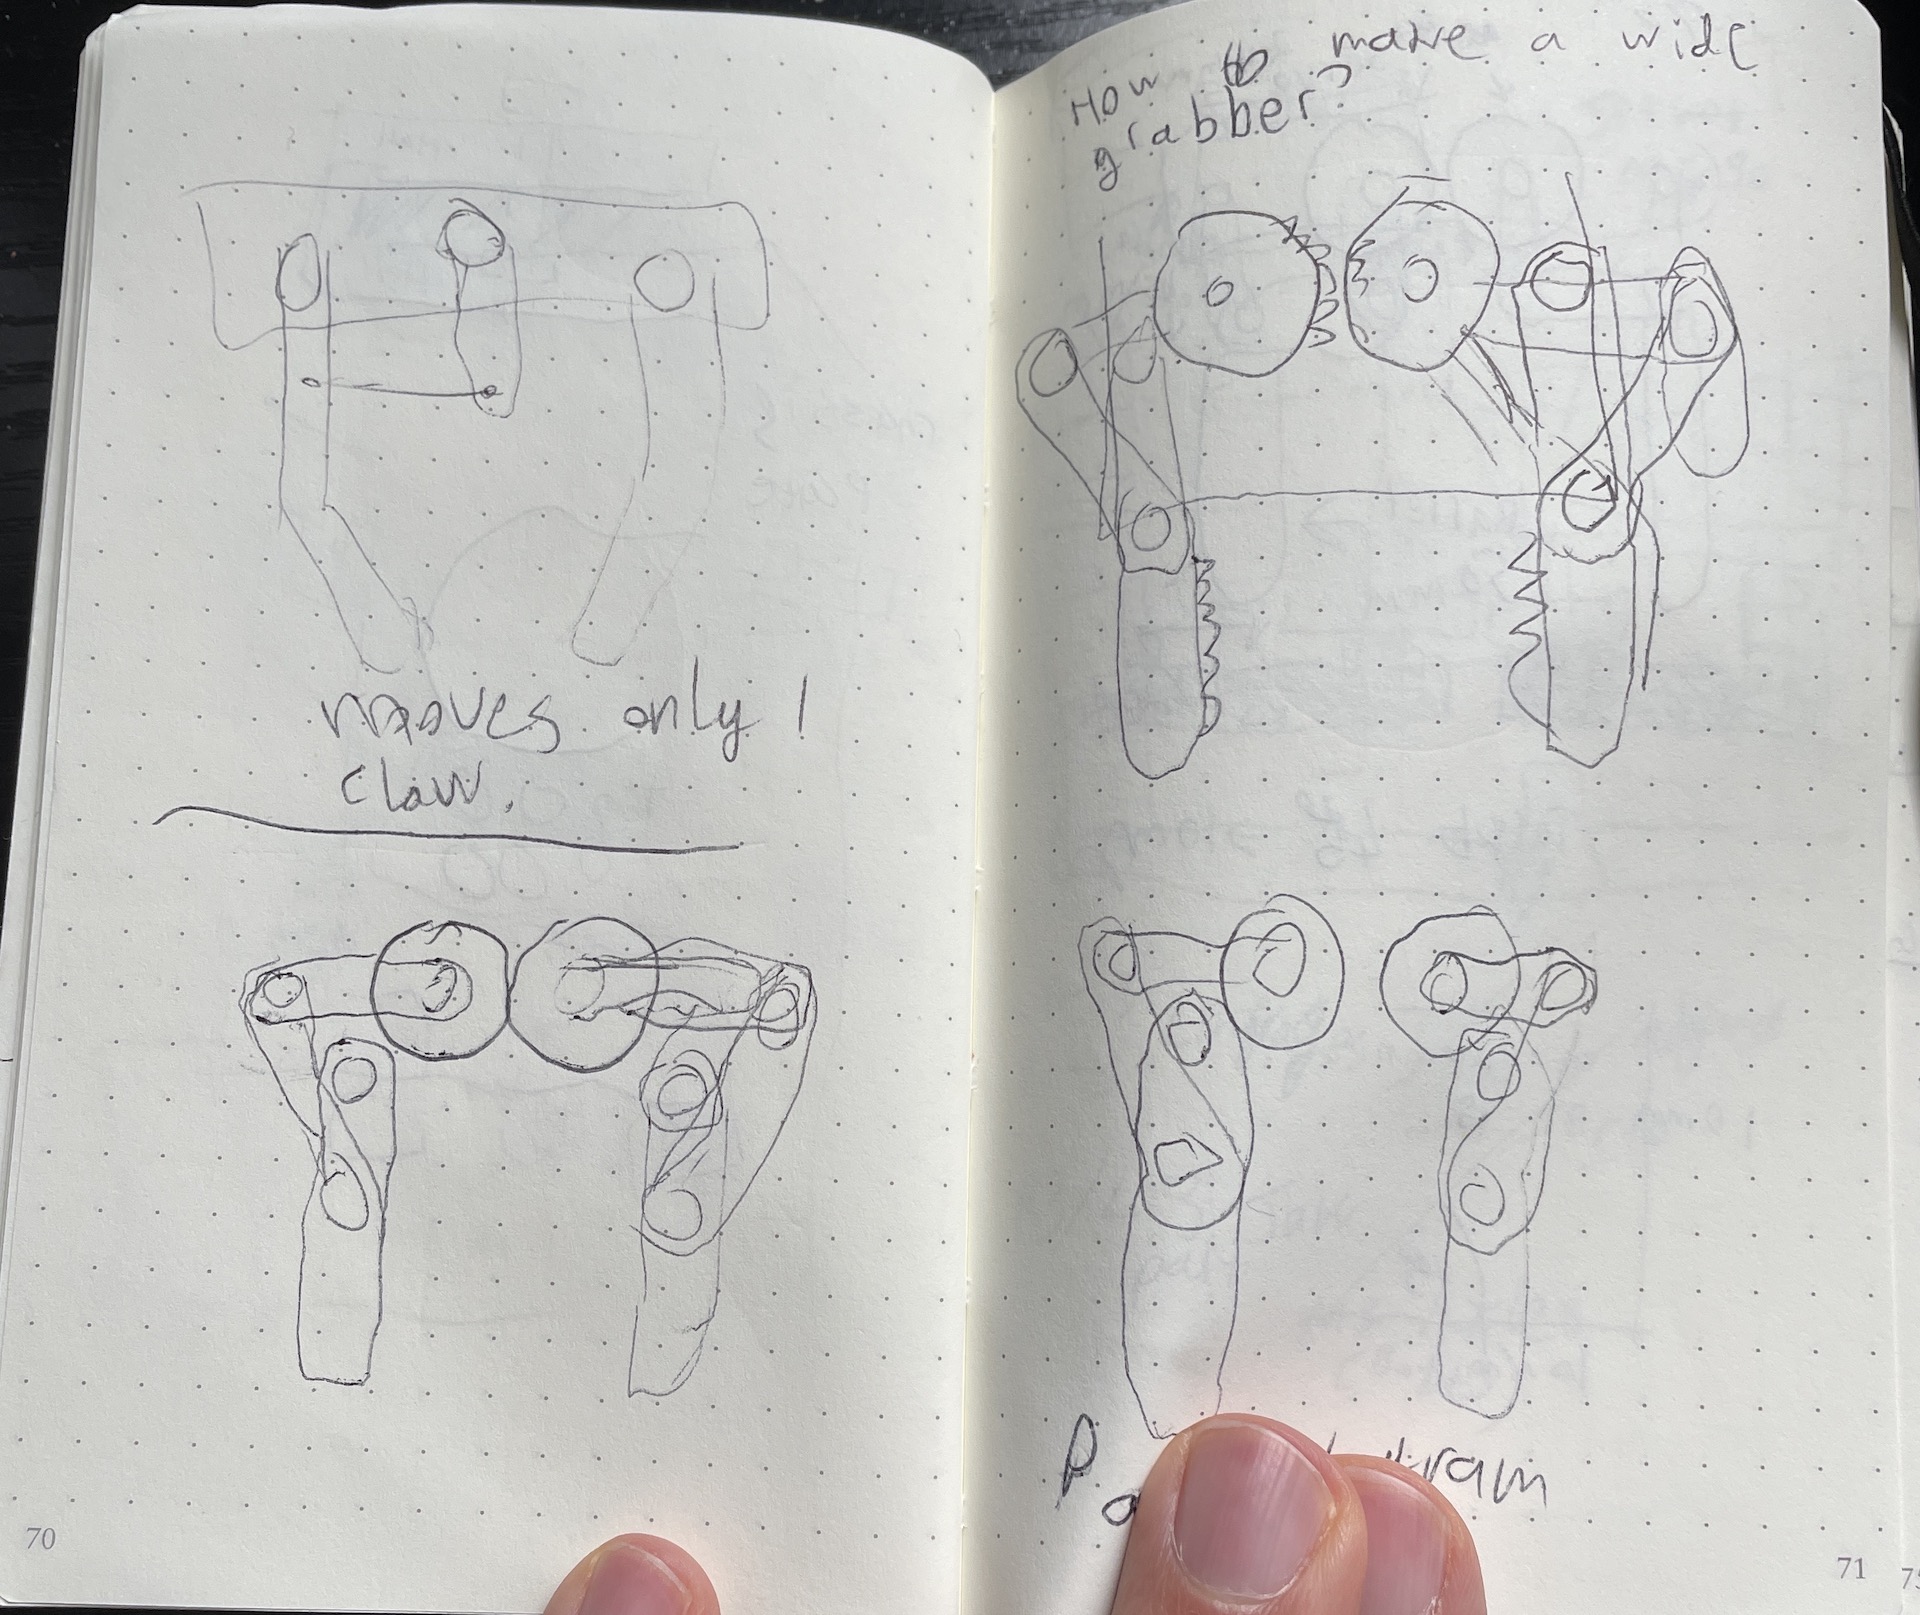 mooves only 1
claw.
70
How to make a wide
grabber?
71